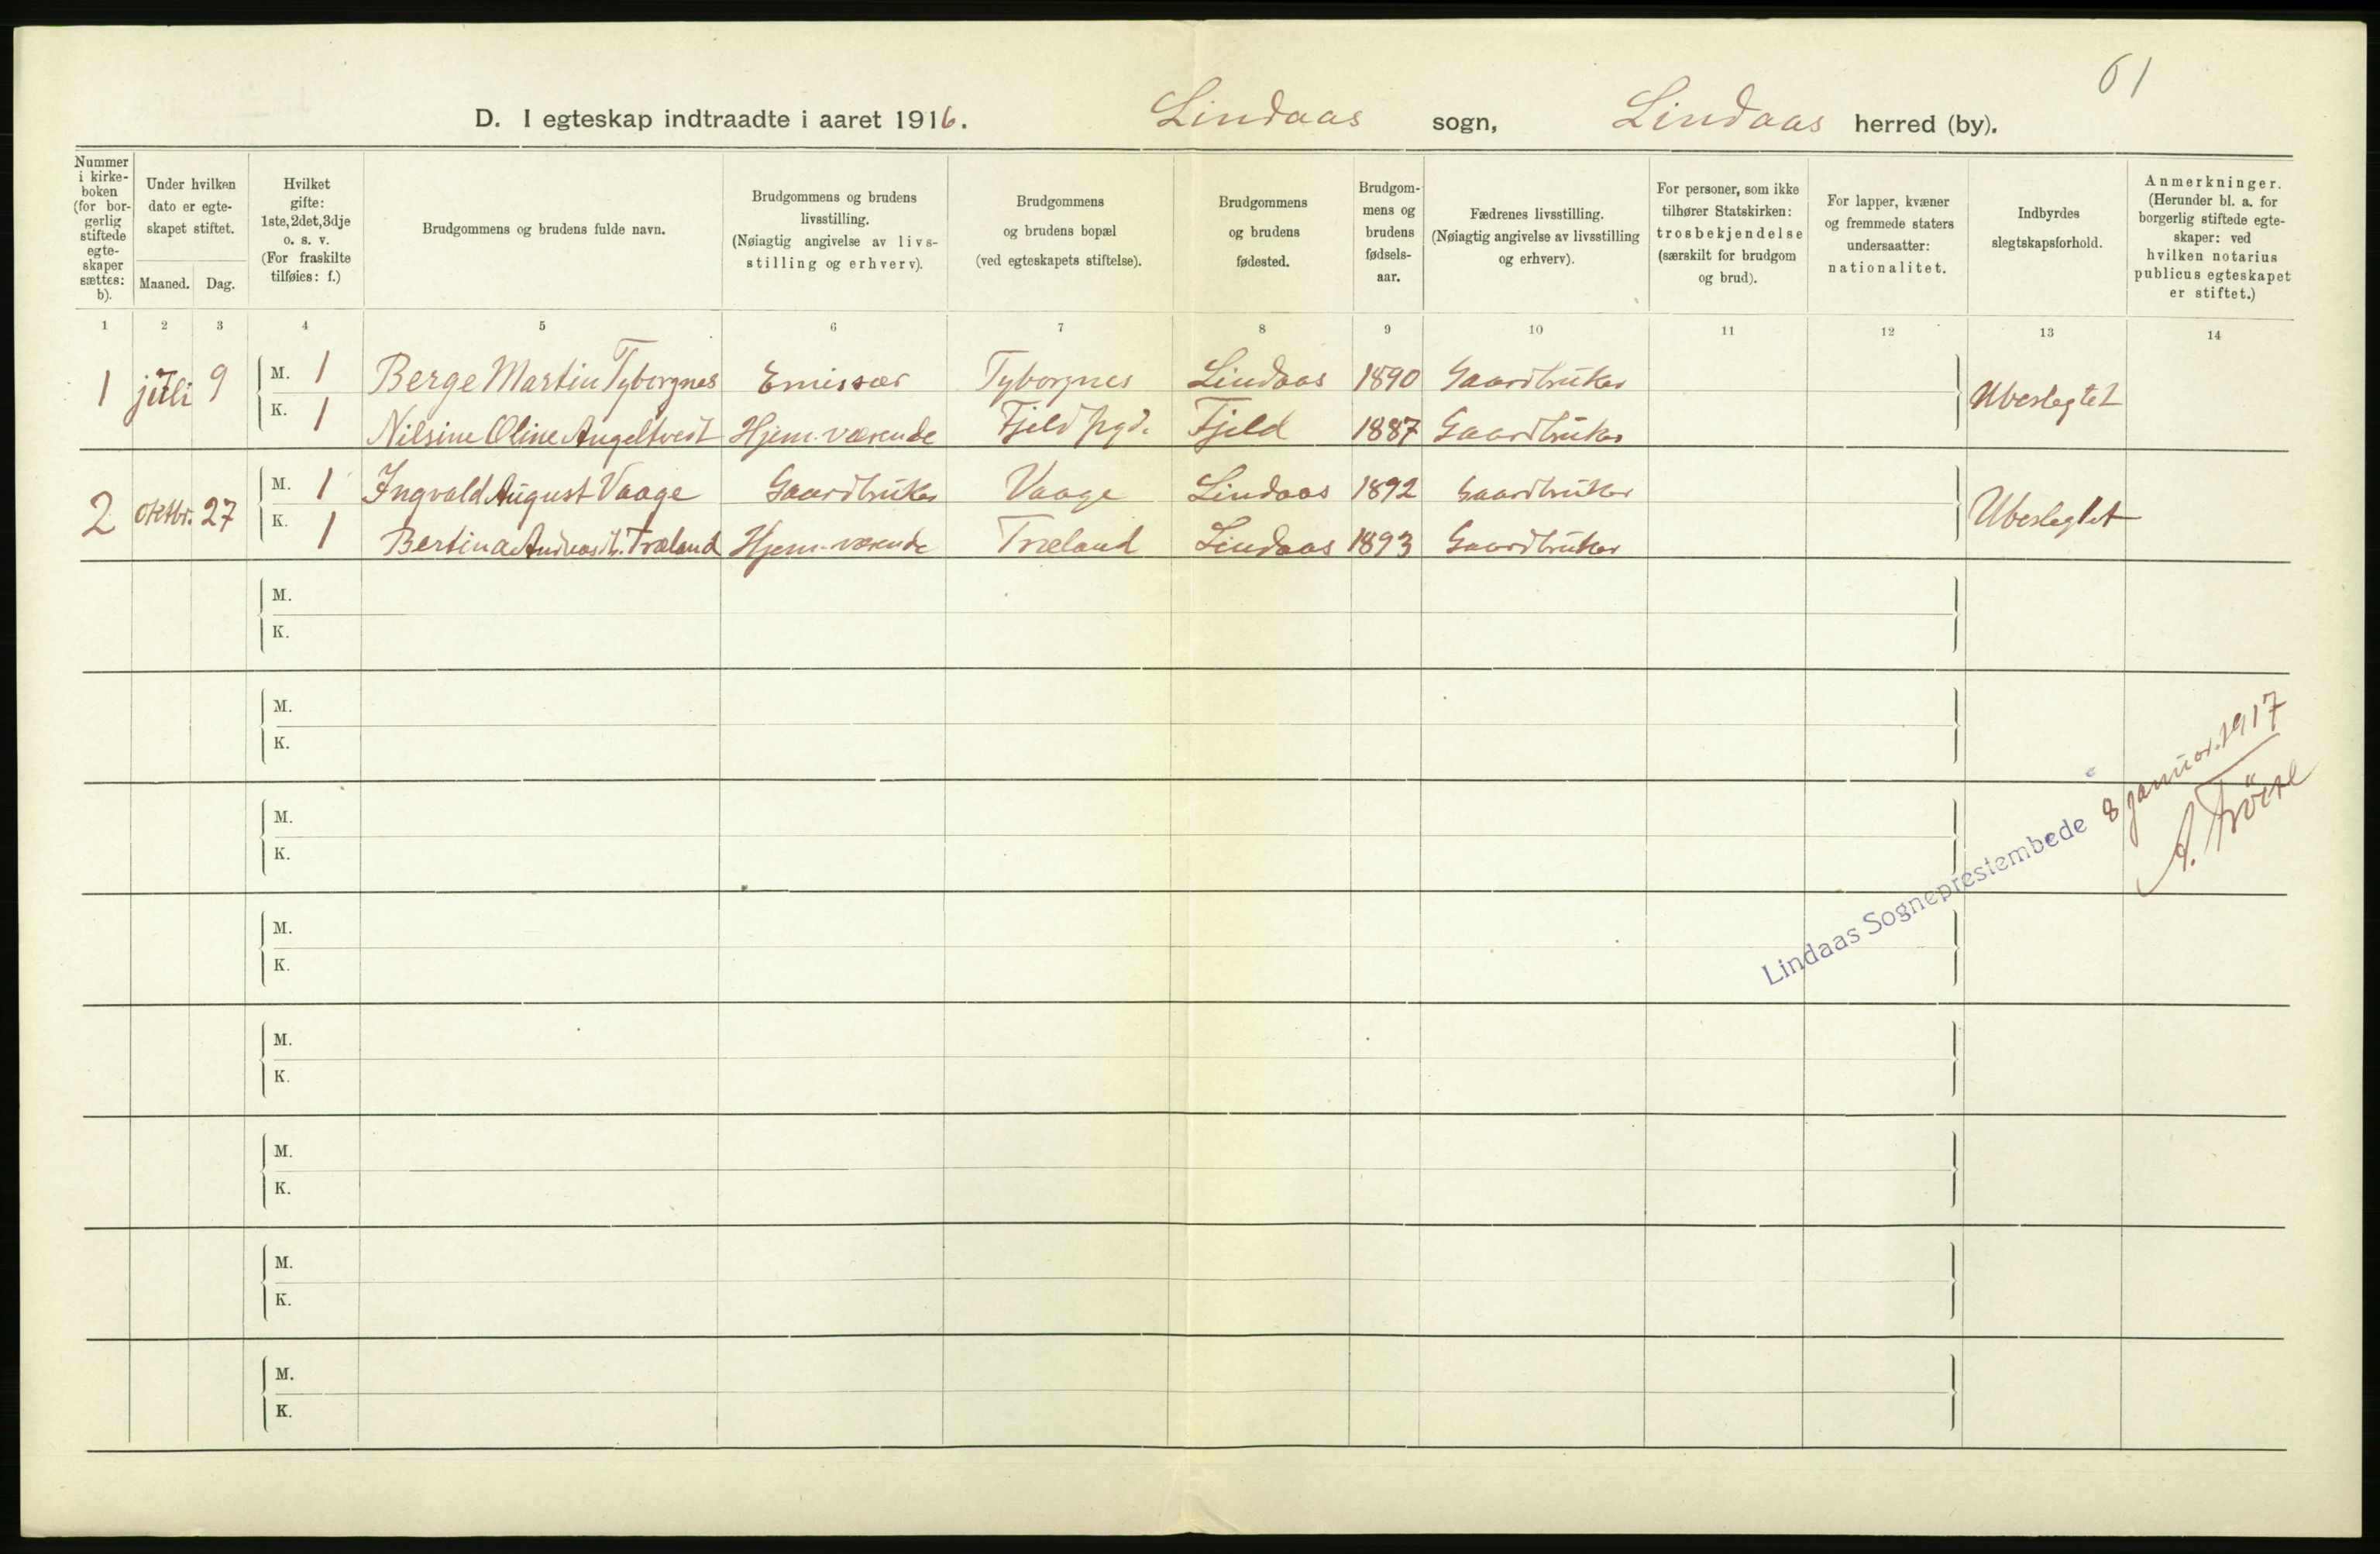 61
D. I egteskap indtraadte i aaret 1916. Lindaas sogn, Lindaas herred (by).
Nummer i kirke-boken (for bor-gerlig stiftede egte-skaper sættes: b).
Under hvilken dato er egte-skapet stiftet.
Maaned. Dag.
Hvilket gifte: 1ste, 2det, 3dje o. s. v. (For fraskilte tilføies: f.)
Brudgommens og brudens fulde navn.
Brudgommens og brudens livsstilling. (Nøiagtig angivelse av livs-stilling og erhverv).
Brudgommens og brudens bopæl (ved egteskapets stiftelse).
Brudgommens og brudens fødested.
Brudgom-mens og brudens fødsels-aar.
Fædrenes livsstilling. (Nøiagtig angivelse av livsstilling og erhverv).
For personer, som ikke tilhører Statskirken: trosbekjendelse (særskilt for brudgom og brud).
For lapper, kvæner og fremmede staters undersaatter: nationalitet.
Indbyrdes slegtskapsforhold.
Anmerkninger. (Herunder bl. a. for borgerlig stiftede egte-skaper: ved hvilken notarius publicus egteskapet er stiftet.)
1 2 3 4 5 6 7 8 9 10 11 12 13 14
1 juli 9 M. 1 Berge Martin Tyborgnes Emissær Tyborgnes Lindaas 1890 Gaardbruker Ubeslegtet
K. 1 Nilsine Oline Angeltveit Hjem. værende Fjeld pgd. Fjeld 1887 Gaardbruker
2 oktbr. 27 M. 1 Ingvald August Vaage Gaardbruker Vaage Lindaas 1892 Gaardbruker Ubeslegtet
K. 1 Bertina Træland Hjem-værende Træland Lindaas 1893 Gaardbruker
M.
K.
M.
K.
M.
K.
M.
K.
M.
K.
M.
K.
M.
K.
M.
K.
Lindaas Sogneprestembede 8 januar. 1917
A.